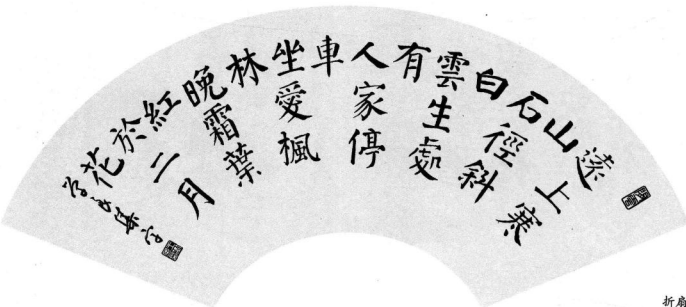 遠上寒
山
石徑斜
白
雲生處
有
人家停
車
坐愛楓
林
晚霜葉
紅
於二月
花
折扇